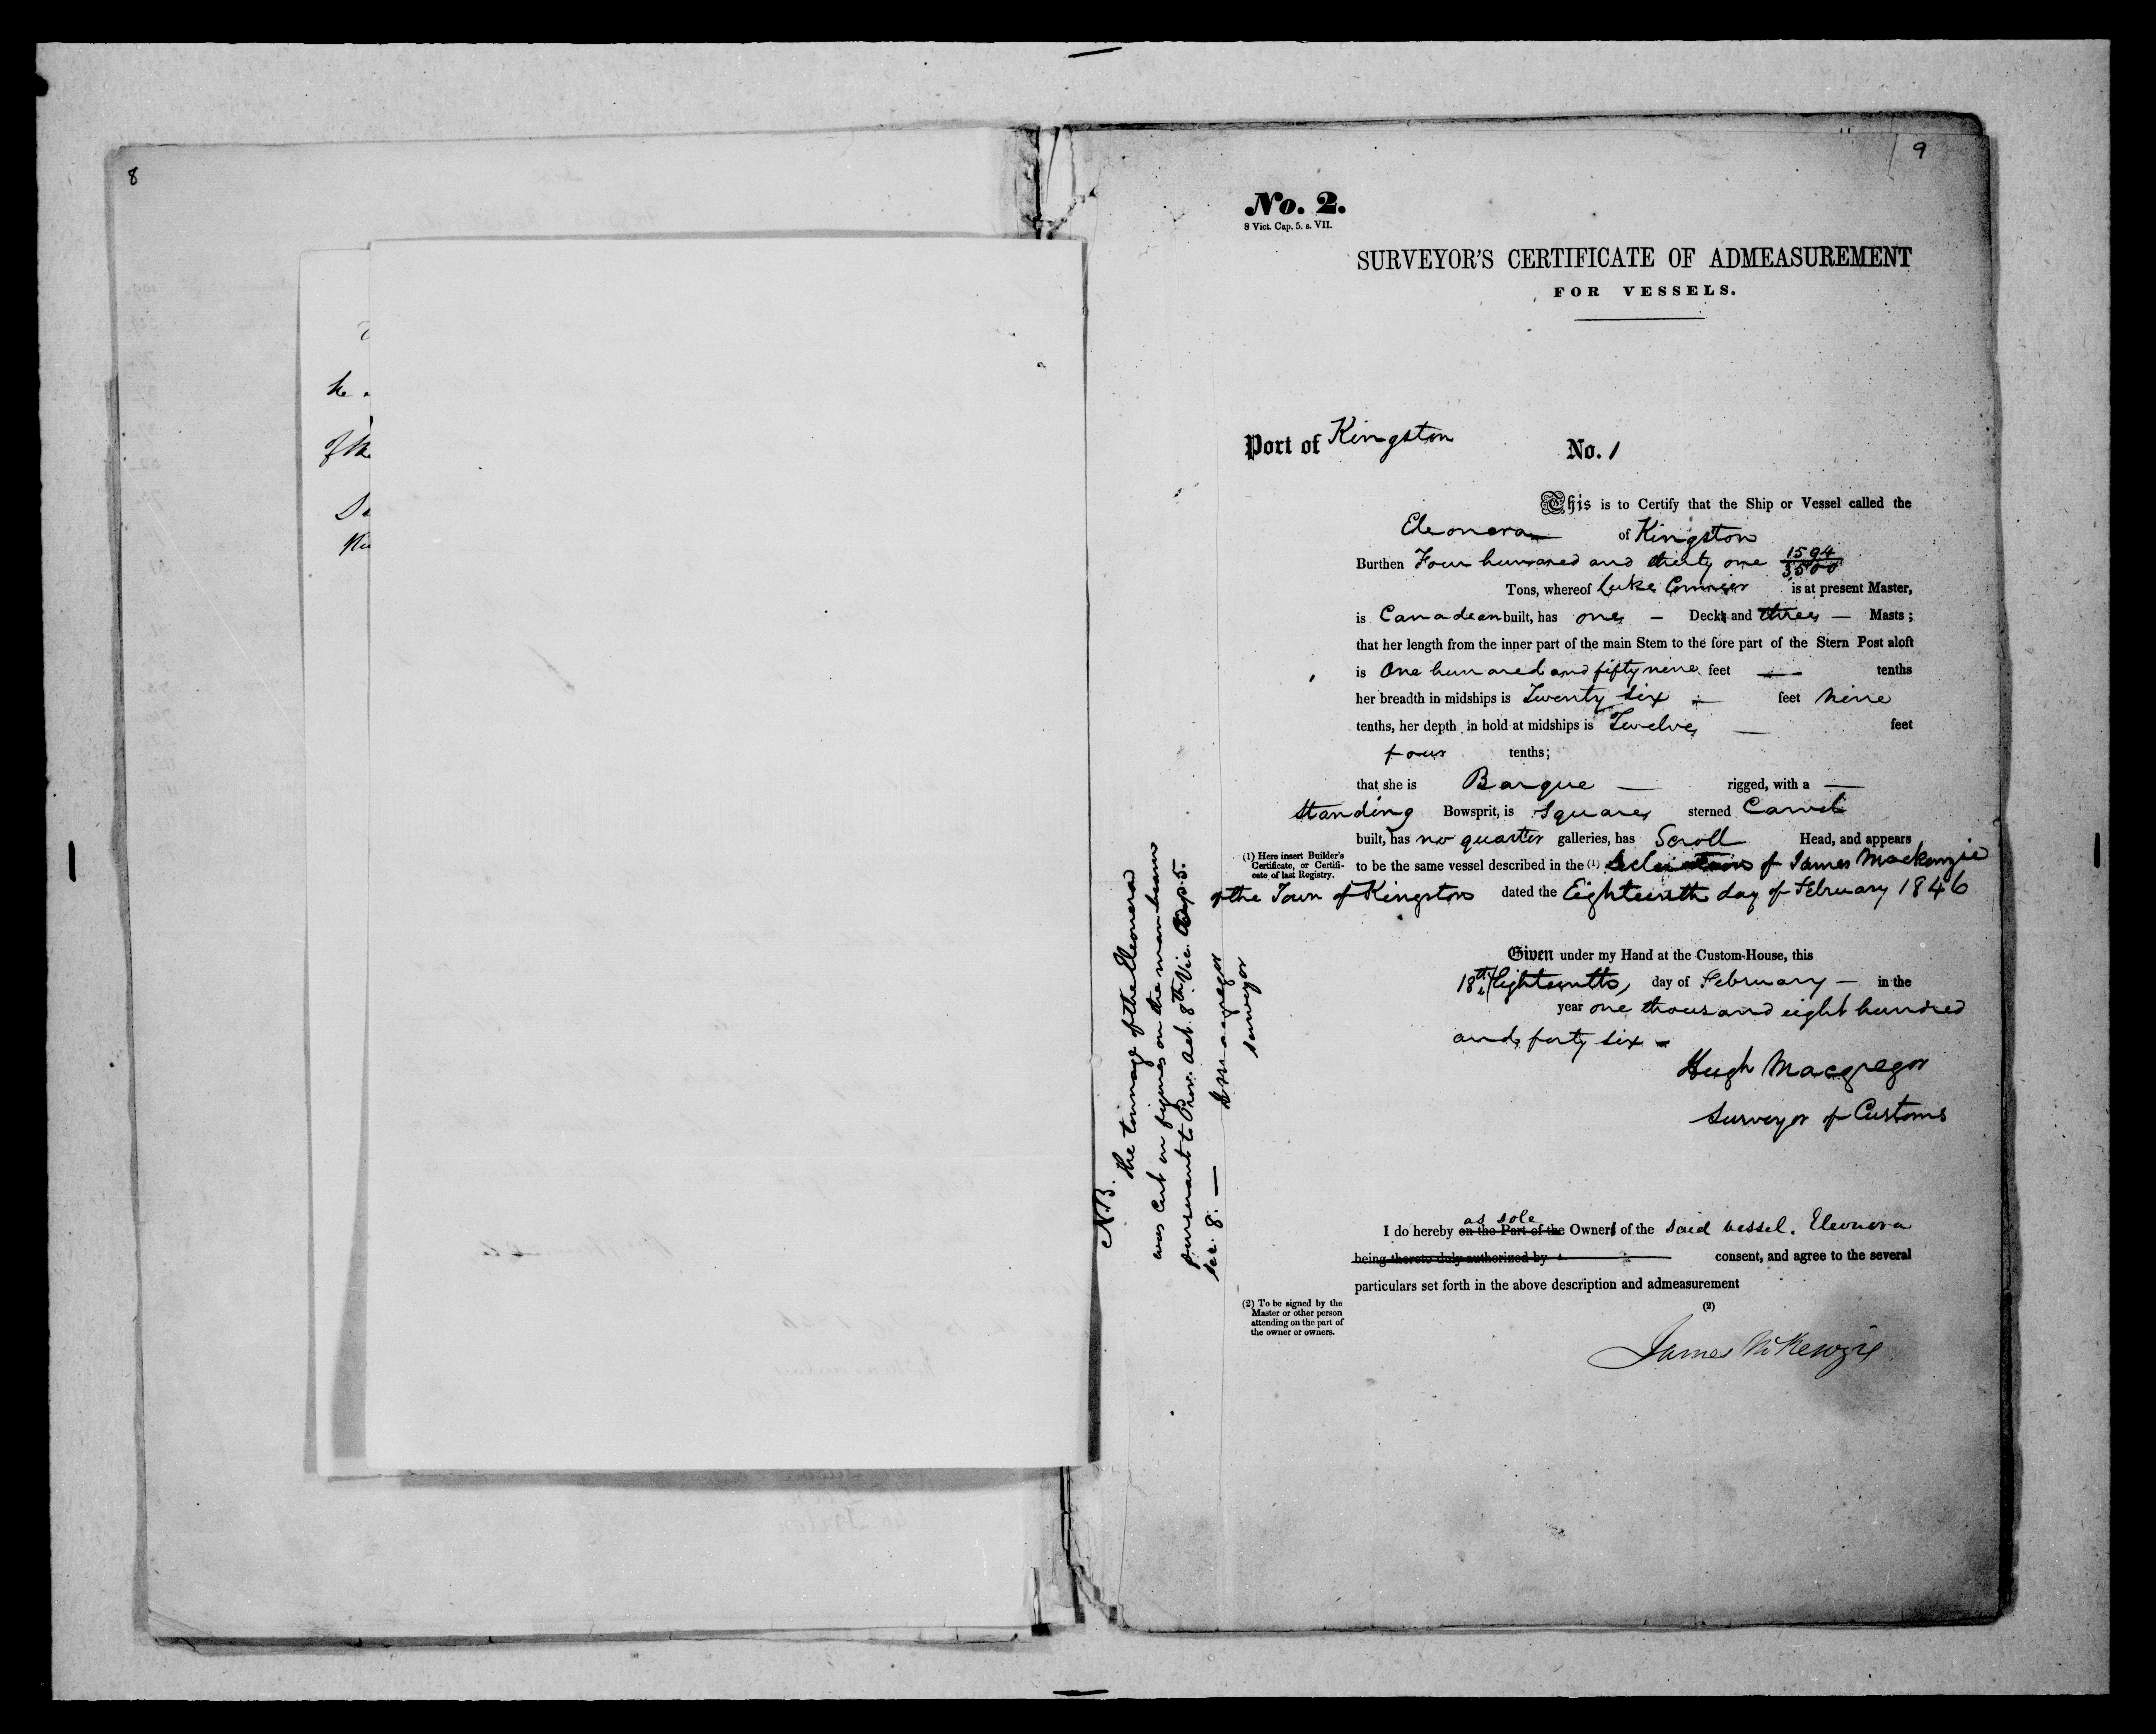 8
he
of the
9
No. 2.
8 Vict. Cap. 5. s. VII.
SURVEYOR'S CERTIFICATE OF ADMEASUREMENT
FOR VESSELS.
Port of Kingston
No. 1
This is to Certify that the Ship or Vessel called the
Eleonora of Kingston
Burthen Four hundred and thirty one 1594/3500
Tons, whereof Luke is at present Master,
is Canadean built, has one - Deck and three - Masts;
that her length from the inner part of the main Stem to the fore part of the Stern Post aloft
is One hundred and fifty nine feet — tenths
her breadth in midships is Twenty six - feet nine
tenths, her depth in hold at midships is Twelve — feet
four tenths;
that she is Barque — rigged, with a —
standing Bowsprit, is Square sterned Carvel
built, has no quarter galleries, has Scroll Head, and appears
(1) Here insert Builder's
Certificate, or Certifi-
cate of last Registry.
to be the same vessel described in the (1) Declaration of James Mackenzie
of the Town of Kingston dated the Eighteenth day of February 1846
Given under my Hand at the Custom-House, this
18th Eighteenth, day of February — in the
year one thousand eight hundred
and forty six -
Hugh Macgregor
Surveyor of Customs
N.B. the tonnage of the Eleonora
was cut in figures on the main beam
pursuant to Prov. Act. 8th Vic. Cap 5.
sec. 8. — Macgregor
surveyor
as sole
I do hereby on the Part of the Owner of the said vessel. Eleonora
being thereto duly authorized by consent, and agree to the several
particulars set forth in the above description and admeasurement
(2) To be signed by the
Master or other person
attending on the part of
the owner or owners.
(2)
James McKenzie